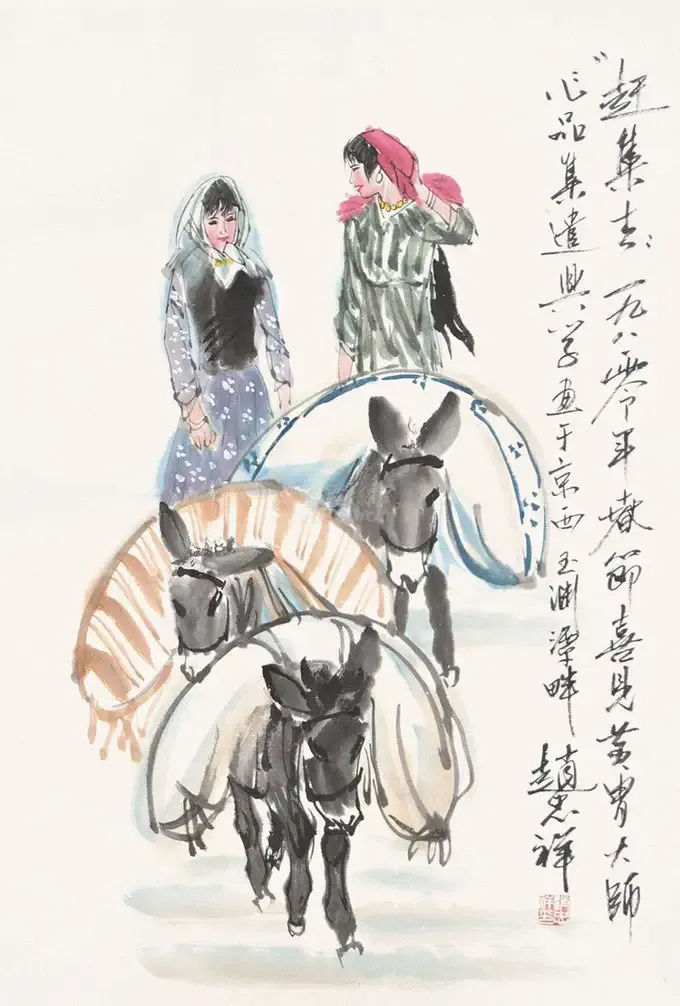 “赶集去”一九八零年春节喜见黄胄大师
作品集遣兴学画于京西玉渊潭畔
赵忠祥